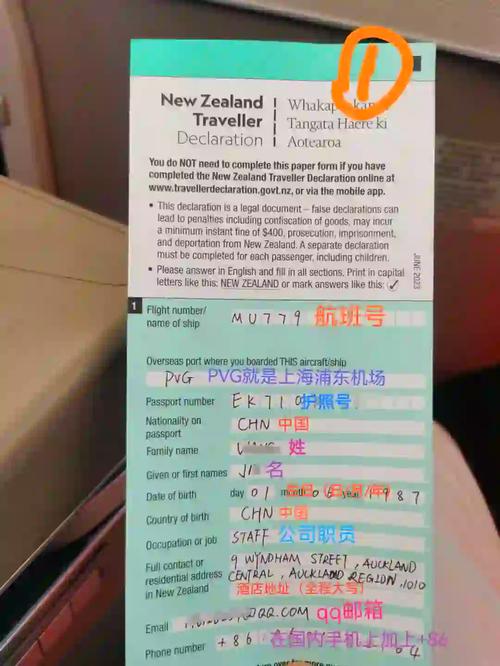 1
New Zealand
Traveller
Declaration
Tangata Haere ki
Aotearoa
You do NOT need to complete this paper form if you have
completed the New Zealand Traveller Declaration online at
www.travellerdeclaration.govt.nz, or via the mobile app.
• This declaration is a legal document – false declarations can
lead to penalties including confiscation of goods, may incur
a minimum instant fine of $400, prosecution, imprisonment,
and deportation from New Zealand. A separate declaration
must be completed for each passenger, including children.
• Please answer in English and fill in all sections. Print in capital
letters like this: NEW ZEALAND or mark answers like this: ✓
JUNE 2023
1
Flight number/
name of ship MU779 航班号
Overseas port where you boarded THIS aircraft/ship
PVG PVG就是上海浦东机场
Passport number EK710 护照号
Nationality on
passport CHN 中国
Family name 姓
Given or first names 名
Date of birth day 01 1987
Country of birth CHN 中国
Occupation or job STAFF 公司职员
Full contact or
residential address
in New Zealand
9 WYNDHAM STREET, AUCKLAND
CENTRAL, AUCKLAND REGION, 1010
酒店地址（全程大写）
Email @QQ.COM qq邮箱
Phone number +86 在国内手机上加上+86